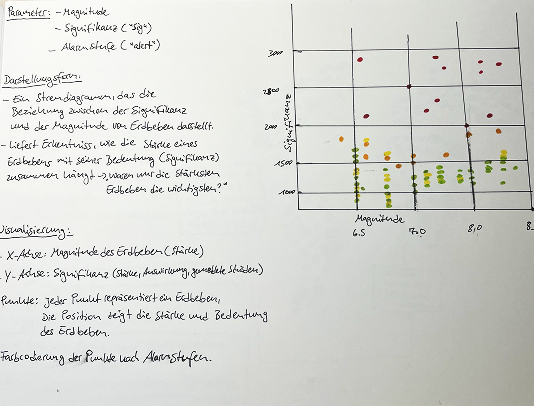 Parameter: - Magnitude
- Signifikanz ("sig")
- Alarmstufe ("alert")
Darstellungsform:
- Ein Streudiagramm, das die
Beziehung zwischen der Signifikanz
und der Magnitude von Erdbeben darstellt.
- Liefert Erkenntnis, wie die Stärke eines
Erdbebens mit seiner Bedeutung (Signifikanz)
zusammenhängt -> "waren nur die Stärksten
Erdbeben die wichtigsten?"
Visualisierung:
- X-Achse: Magnitude des Erdbeben (Stärke)
- Y-Achse: Signifikanz (Stärke, Auswirkung, gemeldete Schäden)
Punkte: Jeder Punkt repräsentiert ein Erdbeben,
Die Position zeigt die Stärke und Bedeutung
des Erdbeben.
Farbcodierung der Punkte nach Alarmstufen.
3000
2500
2000
1500
1000
Signifikanz
Magnitude
6.5 7.0 8.0 8.